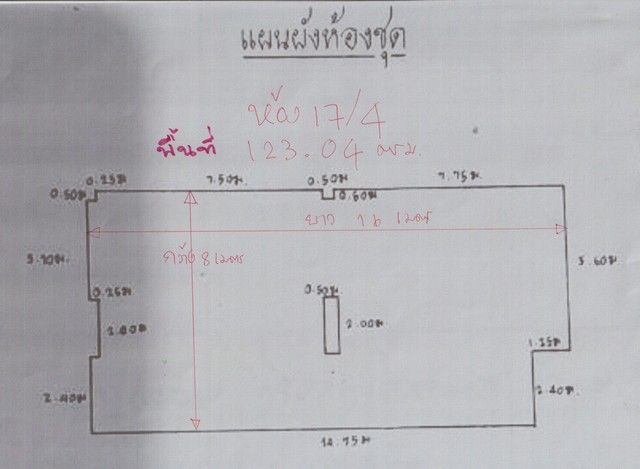 แผนผังห้องชุด
ห้อง 17/4
พื้นที่ 123.04 ตรม.
0.25ม 7.50ม. 0.50ม 7.75ม.
0.50ม 0.50ม
ยาว 16 เมตร
กว้าง 8 เมตร 5.60ม.
0.25ม 0.50ม
2.00ม 2.00ม
1.25ม
2.40ม 2.40ม
14.75ม